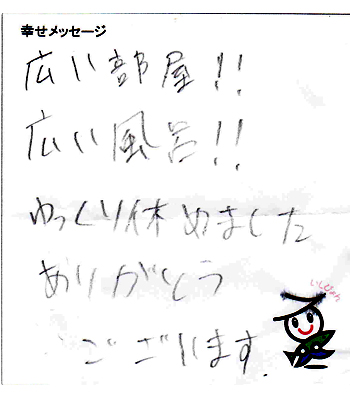 幸せメッセージ
広い部屋!!
広い風呂!!
ゆっくり休めました
ありがとう
ございます.